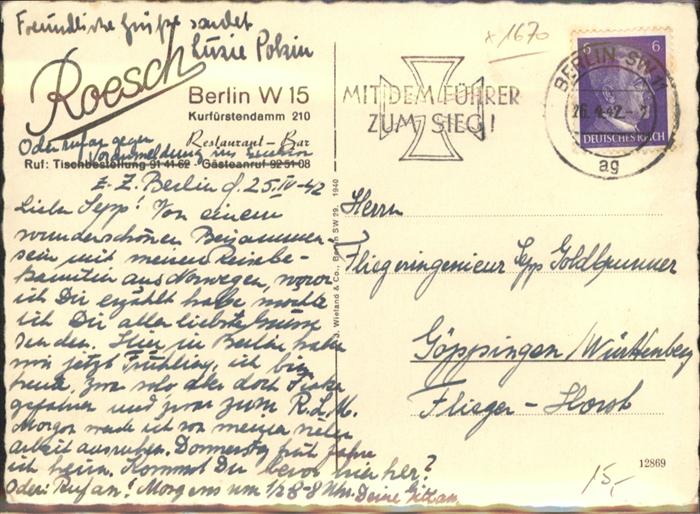 Freundliche Grüße sendet
Luzie
Roesch
Berlin W 15
Kurfürstendamm 210
Restaurant - Bar
Oder ruf an gegen
Voranmeldung
Ruf: Tischbestellung 91 41 62 - Gästeanruf 92 51 08
z. Z. Berlin d. 25.IV-42
Lieber Sepp! Von einem
wunderschönen Beisammen-
sein mit meiner Reisebe-
kanntin aus Norwegen, wovon
ich Dir erzählt habe möchte
ich Dir aller liebste Grüsse
senden. Hier in Berlin haben
wir jetzt Frühling, ich bin
heute, zwar solo, aber doch
gefahren und zwar zum R.L.M.
Morgen werde ich von meiner vielen
arbeit ausruhen. Donnerstag früh fahre
ich heim. Kommst Du bevor hier her?
Oder: Ruf an! Morgens um 1/2 8-8 Uhr. Deine
J. Wieland & Co., Berlin SW 29. 1940
x 1670
MIT DEM FÜHRER
ZUM SIEG!
BERLIN SW 11
26.4.42
ag
6 6
DEUTSCHES REICH
Herrn
Fliegeringenieur Sepp Goldbrunner
Göppingen/Württenberg
Flieger-Horst
12869
15,-